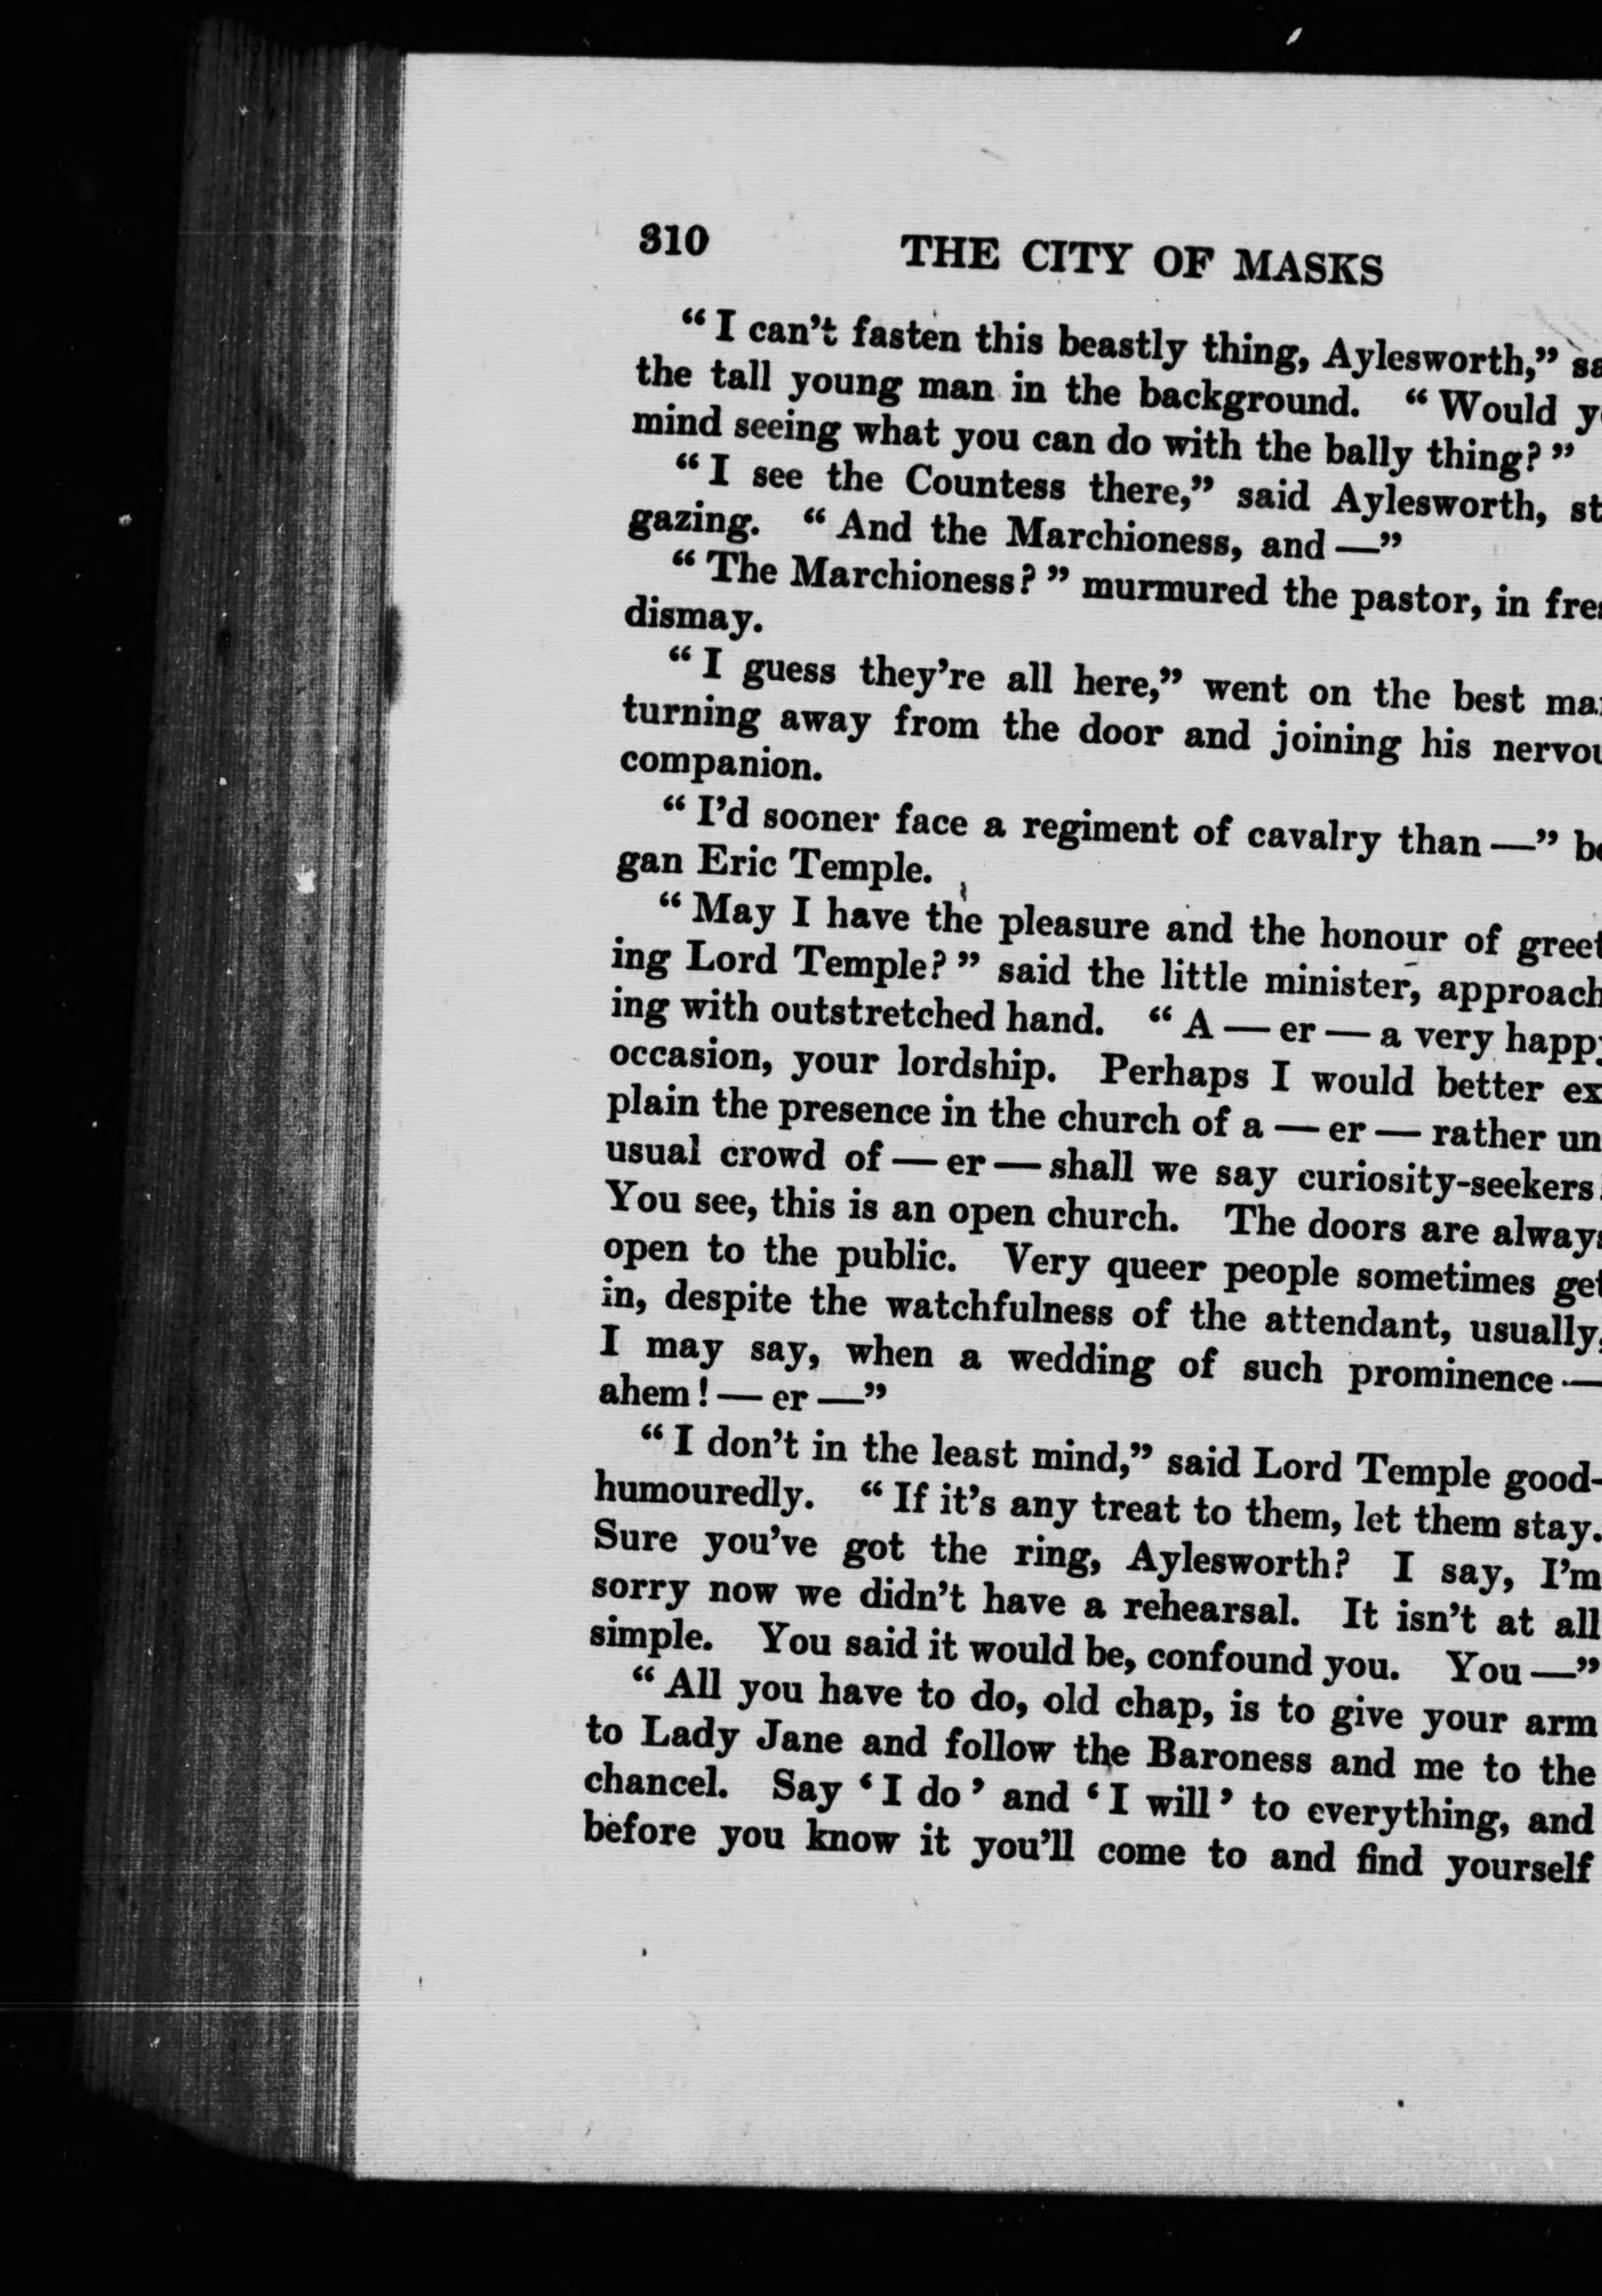 310 THE CITY OF MASKS
“I can’t fasten this beastly thing, Aylesworth,” sa
the tall young man in the background. “Would y
mind seeing what you can do with the bally thing?”
“I see the Countess there,” said Aylesworth, st
gazing. “And the Marchioness, and —”
“The Marchioness?” murmured the pastor, in fre
dismay.
“I guess they’re all here,” went on the best ma
turning away from the door and joining his nervou
companion.
“I’d sooner face a regiment of cavalry than —” be
gan Eric Temple.
“May I have the pleasure and the honour of greet
ing Lord Temple?” said the little minister, approach
ing with outstretched hand. “A — er — a very happy
occasion, your lordship. Perhaps I would better ex
plain the presence in the church of a — er — rather un
usual crowd of — er — shall we say curiosity-seekers
You see, this is an open church. The doors are always
open to the public. Very queer people sometimes get
in, despite the watchfulness of the attendant, usually,
I may say, when a wedding of such prominence —
ahem! — er —”
“I don’t in the least mind,” said Lord Temple good-
humouredly. “If it’s any treat to them, let them stay.
Sure you’ve got the ring, Aylesworth? I say, I’m
sorry now we didn’t have a rehearsal. It isn’t at all
simple. You said it would be, confound you. You —”
“All you have to do, old chap, is to give your arm
to Lady Jane and follow the Baroness and me to the
chancel. Say ‘I do’ and ‘I will’ to everything, and
before you know it you’ll come to and find yourself